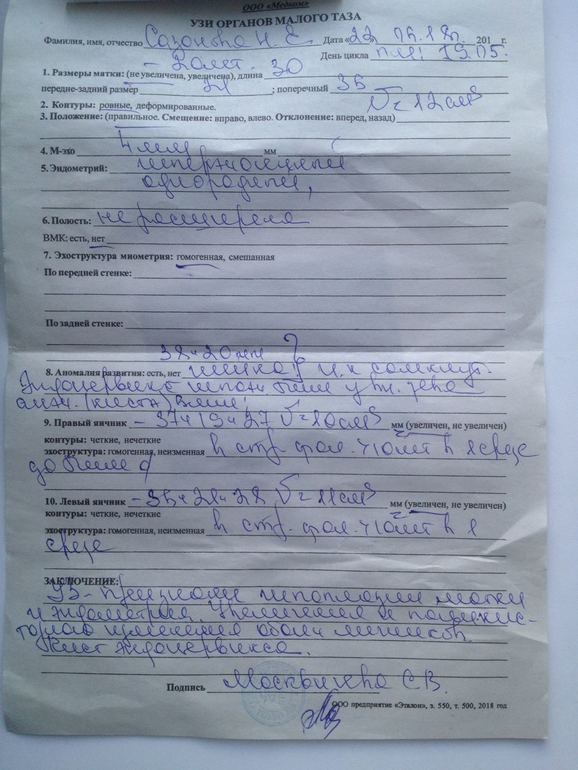 ООО «Медком»
УЗИ ОРГАНОВ МАЛОГО ТАЗА
Фамилия, имя, отчество Дата «22 201 г.
День цикла п.м. 19.05.
1. Размеры матки: (не увеличена, увеличена), длина 30
передне-задний размер 21 ; поперечный 36
V = 12 см³
2. Контуры: ровные, деформированные.
3. Положение: (правильное. Смещение: вправо, влево. Отклонение: вперед, назад)
4. М-эхо 4 мм мм
5. Эндометрий: гиперэхогенный
однородный,
6. Полость: не расширена
ВМК: есть, нет
7. Эхоструктура миометрия: гомогенная, смешанная
По передней стенке:
По задней стенке:
8. Аномалия развития: есть, нет шейка
9. Правый яичник - 37 х 19 х 27 V = 10 см³ мм (увеличен, не увеличен)
контуры: четкие, нечеткие
эхоструктура: гомогенная, неизменная в стр. фол. > 10 шт в 1 срезе
до 6 мм d
10. Левый яичник мм (увеличен, не увеличен)
контуры: четкие, нечеткие
эхоструктура: гомогенная, неизменная в стр. фол. > 10 шт в 1
срезе
ЗАКЛЮЧЕНИЕ:
УЗ-признаки гипоплазии матки
и эндометрия, увеличения и поликис-
тозного изменения обоих яичников.
Кист эндоцервикса.
Подпись Москвичева С.В.
ООО предприятие «Эталон», з. 550, т. 500, 2018 год